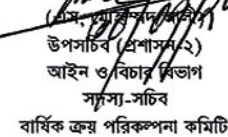 উপসচিব (প্রশাসন-২)
আইন ও বিচার বিভাগ
সদস্য-সচিব
বার্ষিক ক্রয় পরিকল্পনা কমিটি